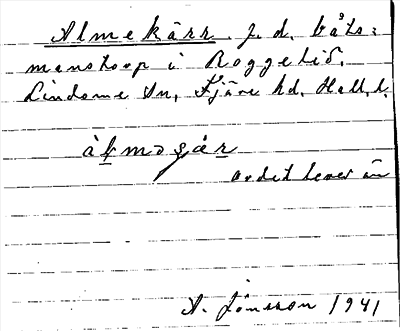 Almekärr. f. d. båts-
manstorp i Roggelid,
Lindome sn, Fjäre hd. Hall. l.
àḷməgár
ordet lever än
A. Jönsson 1941